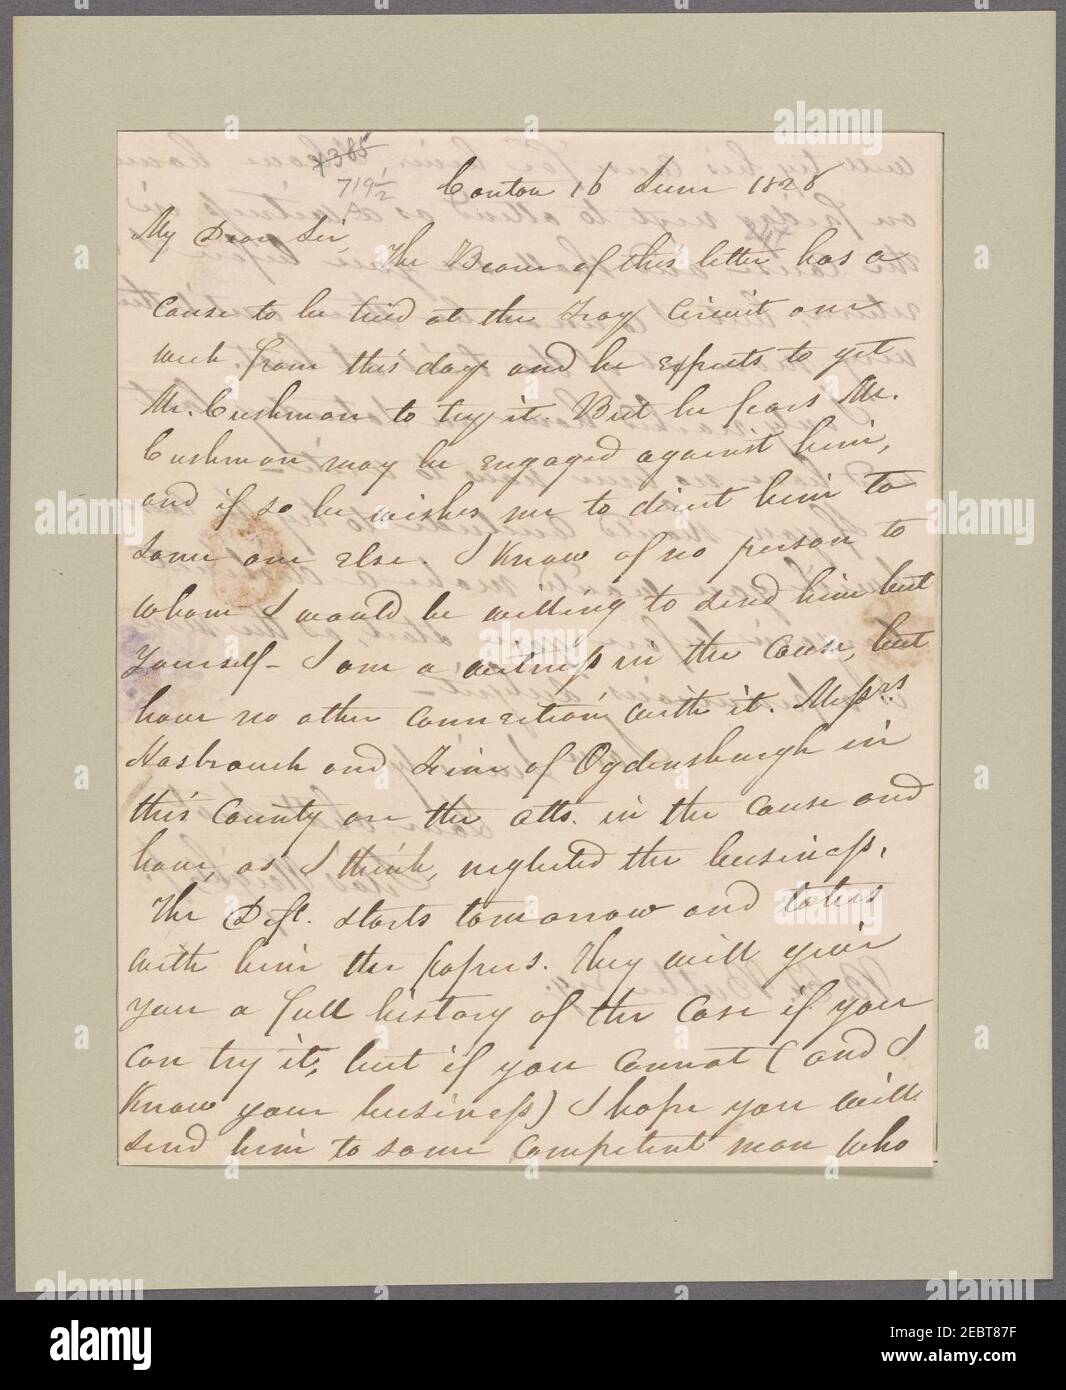 1385
719½
A
Canton 16 June 1828
My Dear Sir, The Bearer of this letter has a
cause to be tried at the Troy Circuit one
week from this day and he expects to get
Mr. Cushman to try it. But he fears Mr.
Cushman may be engaged against him,
and if so he wishes me to direct him to
some one else. I know of no person to
whom I would be willing to send him but
yourself - I am a witness in the cause, but
have no other connection with it. Messrs
Hasbrouck and Fine of Ogdensburgh in
this County are the atts. in the cause and
have, as I think, neglected the business.
The Deft. starts tomorrow and takes
with him the papers. They will give
you a full history of the case if you
can try it, but if you cannot (and I
know your business) I hope you will
send him to some competent man who
alamy
Image ID: 2EBT87F
www.alamy.com